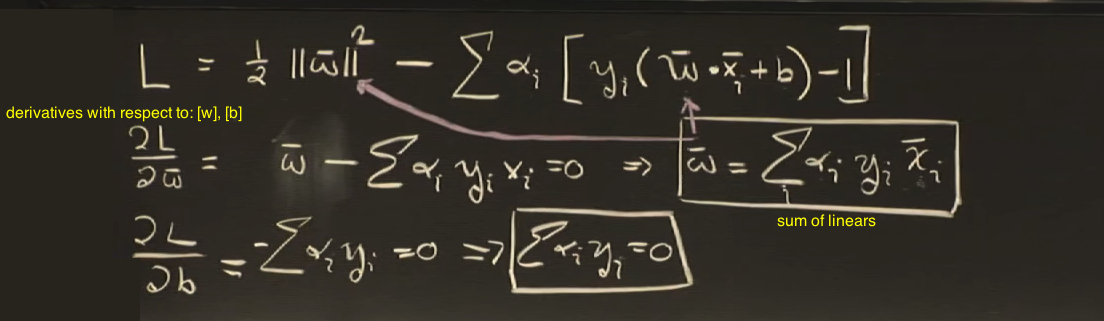 L = ½ ||w̄||² − Σ αᵢ [ yᵢ ( w̄ · x̄ᵢ + b ) − 1 ]
derivatives with respect to: [w], [b]
∂L/∂w̄ = w̄ − Σ αᵢ yᵢ xᵢ = 0 ⇒ w̄ = Σᵢ αᵢ yᵢ x̄ᵢ
sum of linears
∂L/∂b = −Σ αᵢ yᵢ = 0 ⇒ Σ αᵢ yᵢ = 0